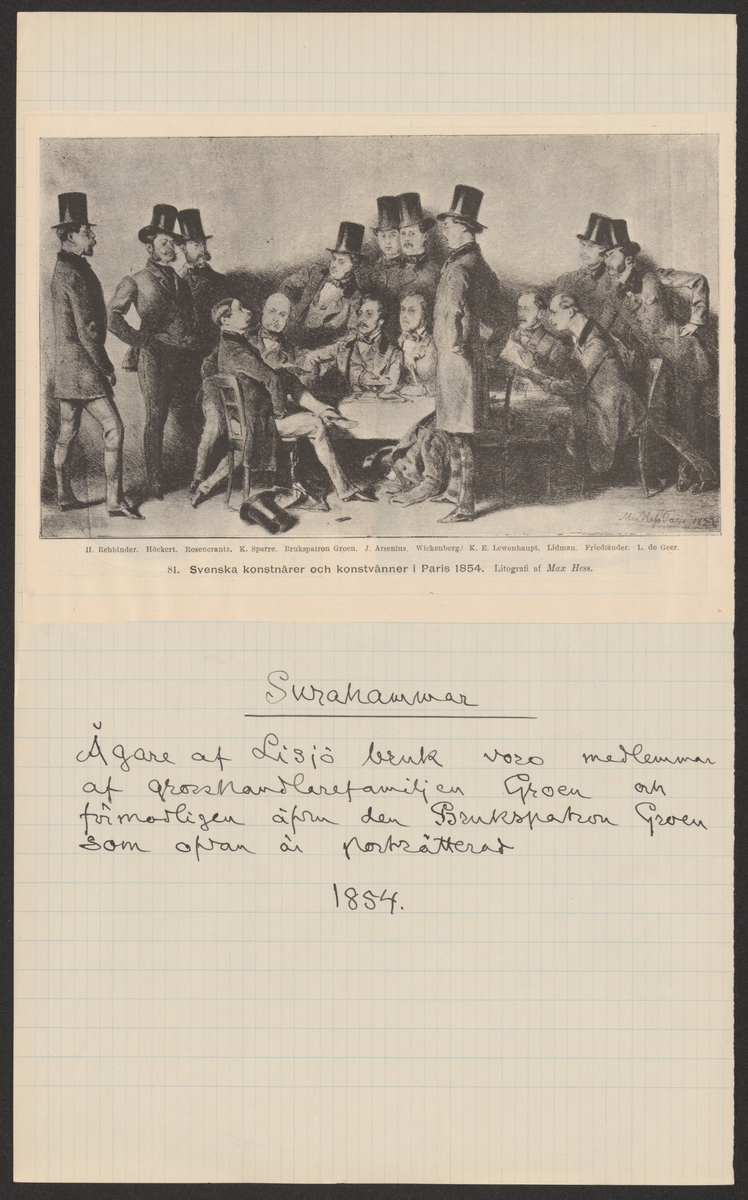 Max Hess Paris 1854
H. Rehbinder. Höckert. Rosencrantz. K. Sparre. Brukspatron Groen. J. Arsenius. Wickenberg. K. E. Lewenhaupt. Lidman. Friedländer. L. de Geer.
81. Svenska konstnärer och konstvänner i Paris 1854. Litografi af Max Hess.
Surahammar
Ägare af Lisjö bruk voro medlemmar
af grosshandlarefamiljen Groen och
förmodligen äfven den Brukspatron Groen
som ofvan är porträtterad
1854.